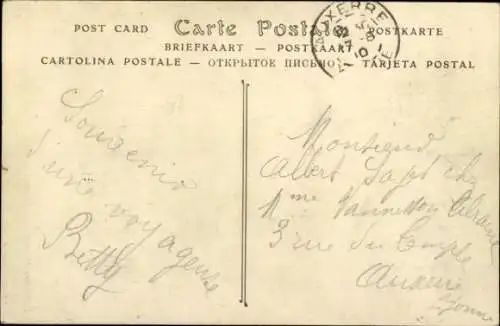 POST CARD Carte Postale POSTKARTE
BRIEFKAART — POSTKAART —
CARTOLINA POSTALE — ОТКРЫТОЕ ПИСЬМО — TARJETA POSTAL
AUXERRE
Souvenir
d'une
voyageuse
Betty
Monsieur
Albert chez
Mme
3 rue du Temple
Auxerre
Yonne